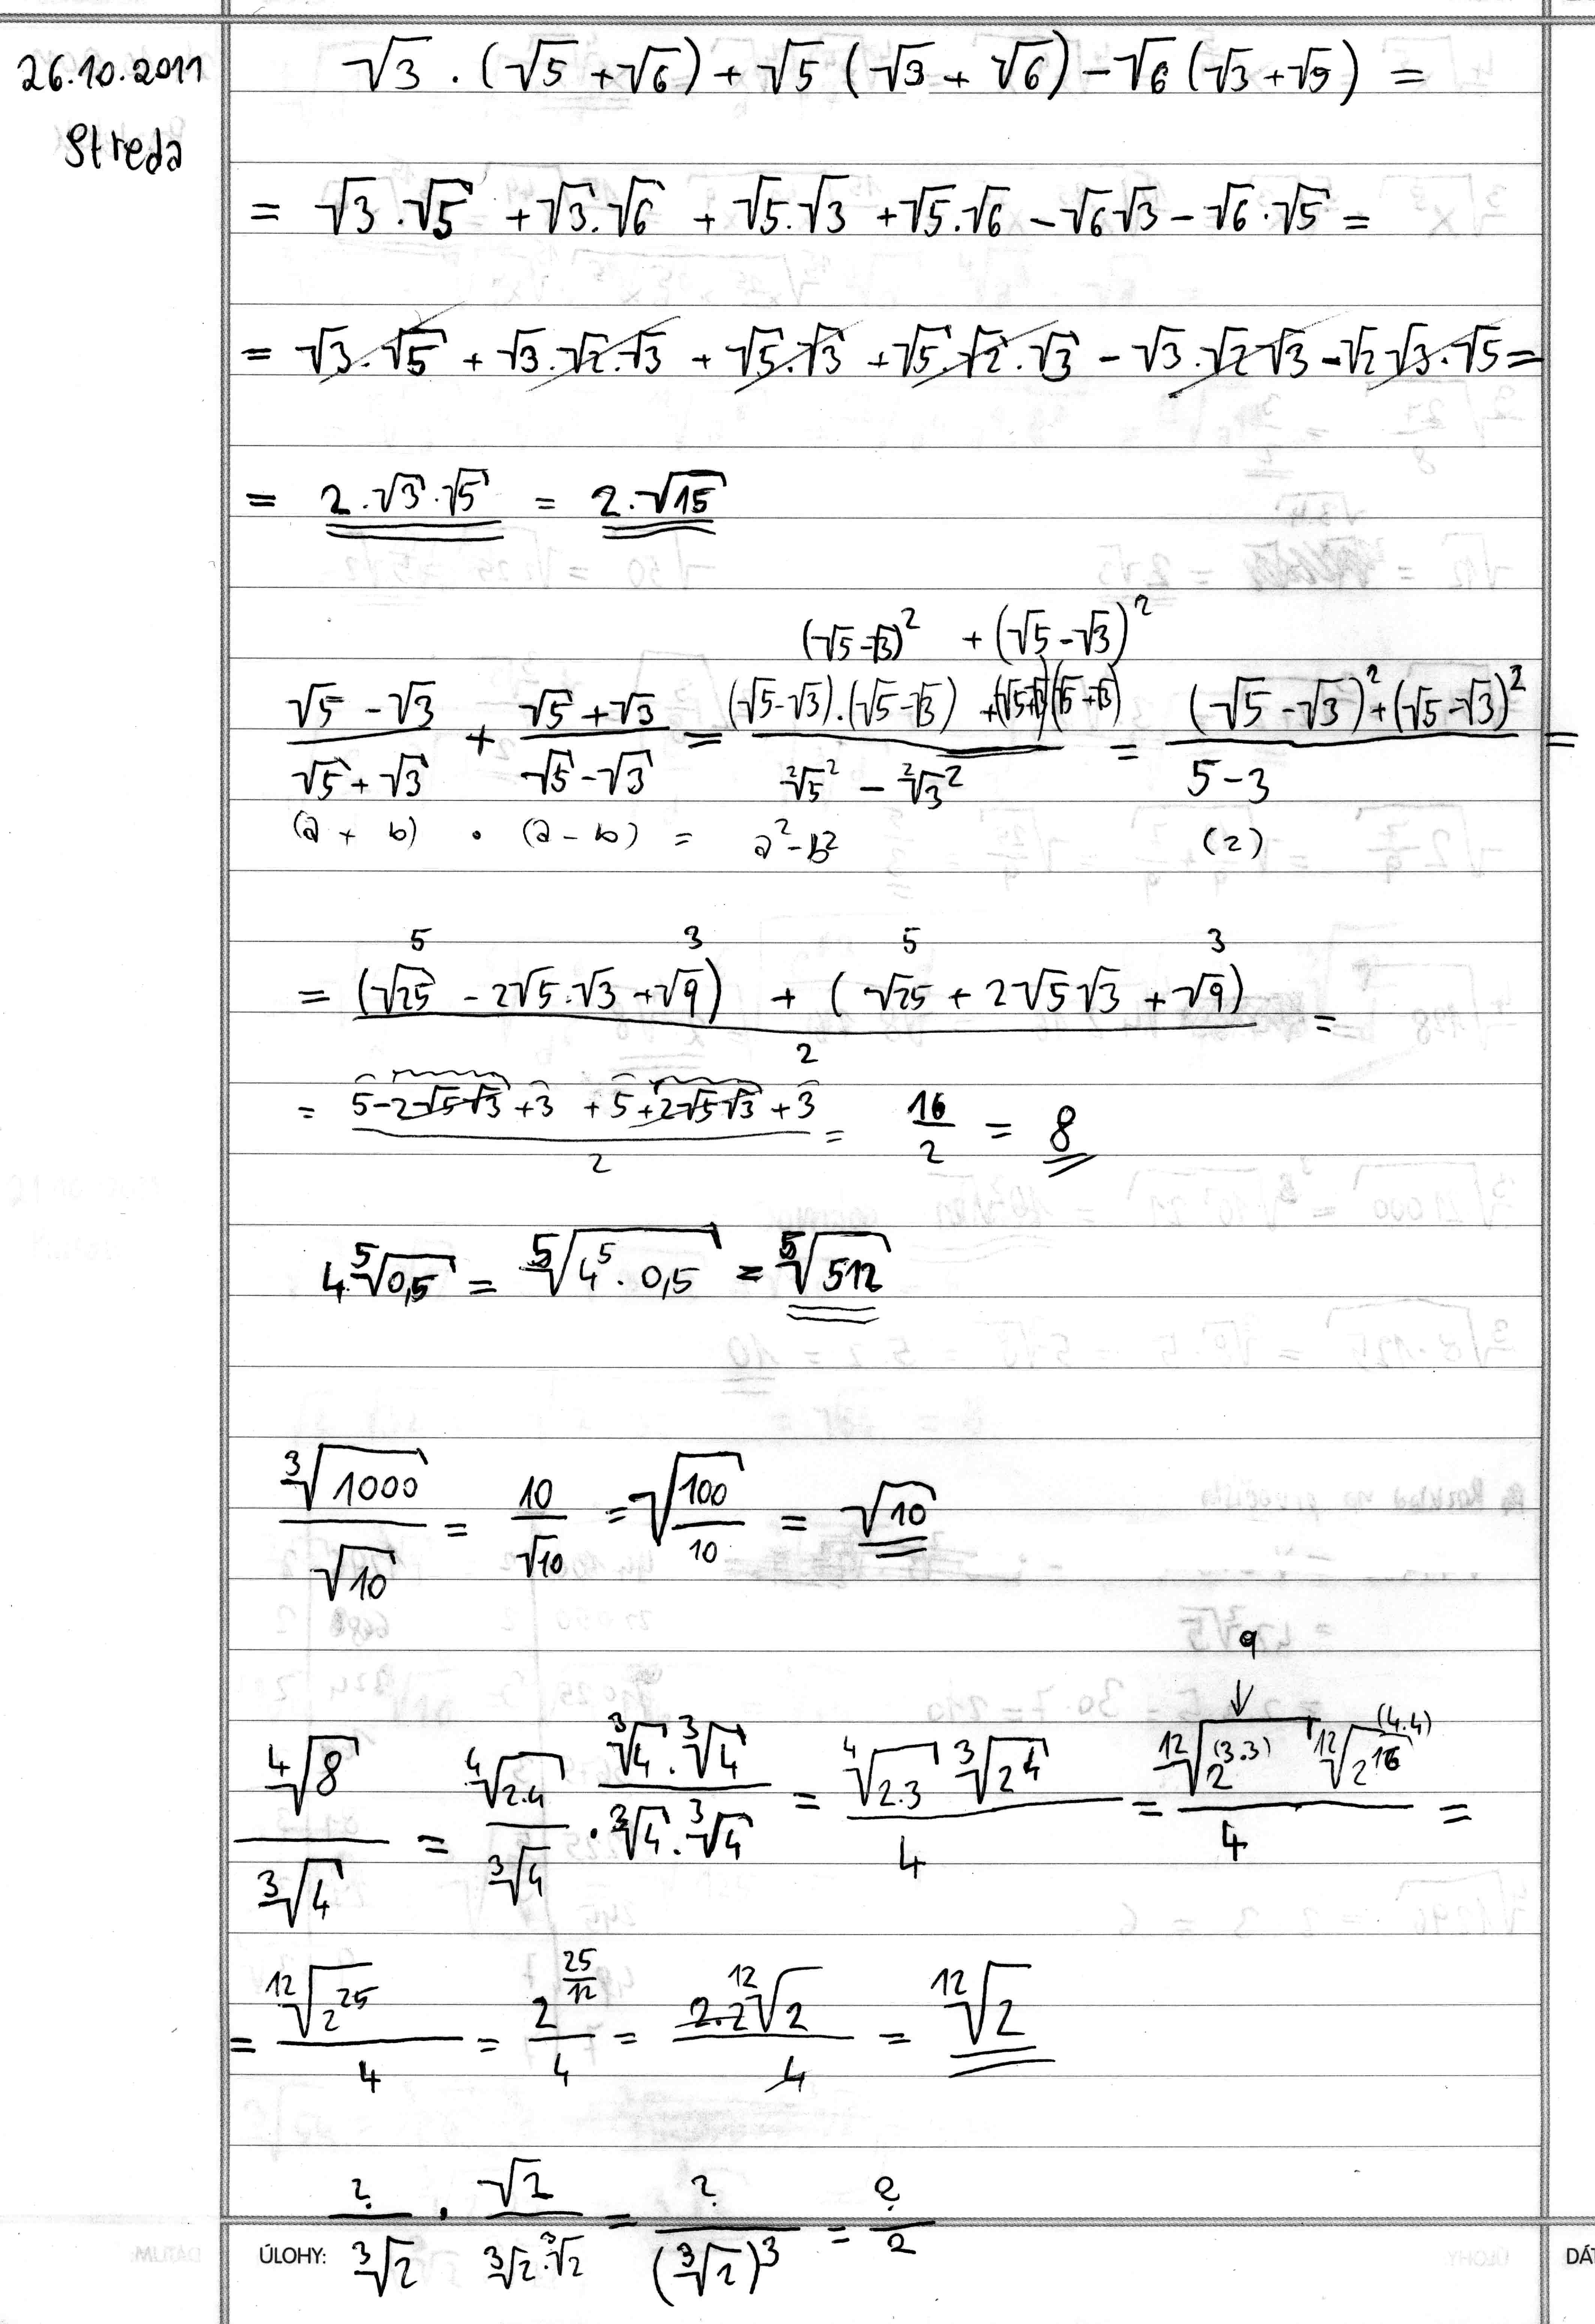 26.10.2011
Streda
√3 . (√5 + √6) + √5 (√3 + √6) - √6 (√3 + √5) =
= √3 . √5 + √3 . √6 + √5 . √3 + √5 . √6 - √6 √3 - √6 . √5 =
= √3 . √5 + √3 . √2 . √3 + √5 . √3 + √5 . √2 . √3 - √3 . √2 √3 - √2 √3 . √5 =
= 2 . √3 . √5 = 2 . √15
(√5 - √3)² + (√5 - √3)²
√5 - √3 + √5 + √3 = (√5 - √3) . (√5 - √3) + (√5 + √3) (√5 + √3) = (√5 - √3)² + (√5 - √3)² =
√5 + √3 √5 - √3 ²√5² - ²√3² 5 - 3
(a + b) . (a - b) = a² - b² (2)
5 3 5 3
= (√25 - 2√5 . √3 + √9) + (√25 + 2√5 √3 + √9) =
2
= 5 - 2√5 √3 + 3 + 5 + 2√5 √3 + 3 = 16 = 8
2 2
4 . ⁵√0,5 = ⁵√4⁵ . 0,5 = ⁵√512
³√1000 = 10 = √100 = √10
√10 √10 10
9
↓
⁴√8 = ⁴√2.4 . ³√4 . ³√4 = ⁴√2.3 ³√2⁴ = ¹²√2^(3.3) ¹²√2^16 (4.4) =
³√4 ³√4 ³√4 . ³√4 4 4
= ¹²√2^25 = 2^25/12 = 2.2 ¹²√2 = ¹²√2
4 4 4
? . √2 = ? = ?
³√2 ³√2 . ³√2 (³√2)³ 2
ÚLOHY:
DÁT